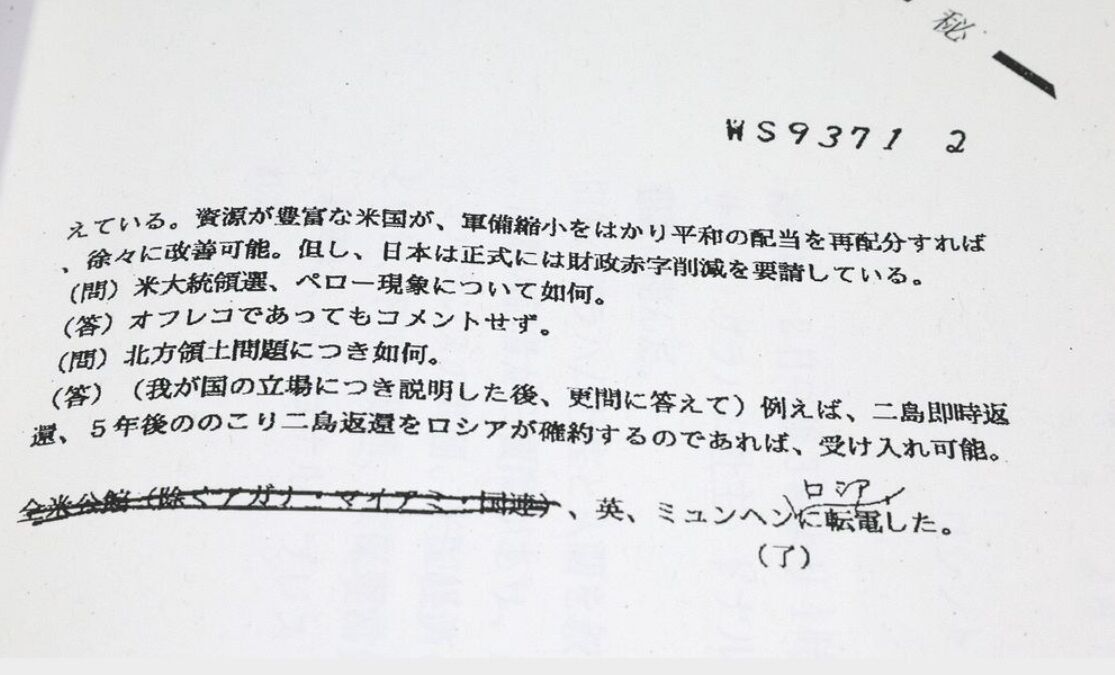 秘
WS9371 2
えている。資源が豊富な米国が、軍備縮小をはかり平和の配当を再配分すれば
、徐々に改善可能。但し、日本は正式には財政赤字削減を要請している。
(問)米大統領選、ペロー現象について如何。
(答)オフレコであってもコメントせず。
(問)北方領土問題につき如何。
(答)(我が国の立場につき説明した後、更問に答えて)例えば、二島即時返
還、5年後ののこり二島返還をロシアが確約するのであれば、受け入れ可能。
ロシア
全米公館(除くアガナ・マイアミ・国連)、英、ミュンヘンに転電した。
(了)